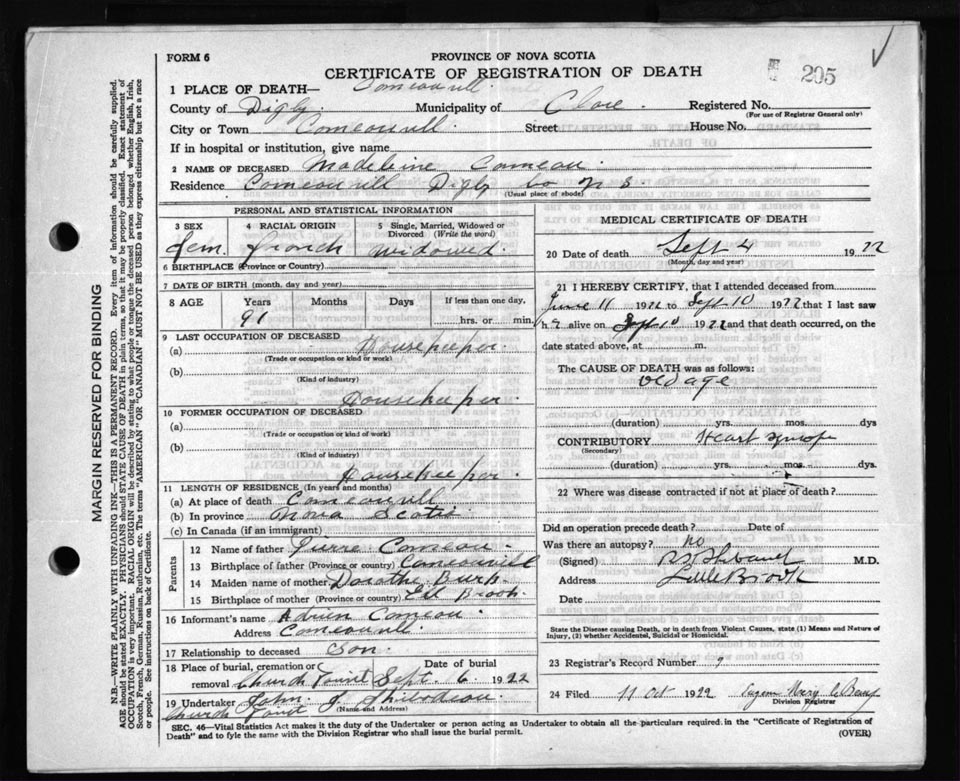 FORM 6
PROVINCE OF NOVA SCOTIA
CERTIFICATE OF REGISTRATION OF DEATH
205
1 PLACE OF DEATH— Comeauvill
County of Digby. Municipality of Clare. Registered No.
(For use of Registrar General only)
City or Town Comeauvill. Street House No.
If in hospital or institution, give name
2 NAME OF DECEASED Madeleine Comeau.
Residence Comeauvill Digby Co N S.
(Usual place of abode)
PERSONAL AND STATISTICAL INFORMATION
3 SEX 4 RACIAL ORIGIN 5 Single, Married, Widowed or Divorced (Write the word)
fem. french widowed.
6 BIRTHPLACE (Province or Country)
7 DATE OF BIRTH (month, day and year)
8 AGE Years Months Days If less than one day,
91 hrs. or min.
9 LAST OCCUPATION OF DECEASED
(a) Housekeeper.
(Trade or occupation or kind or work)
(b)
(Kind of industry)
Housekeeper.
10 FORMER OCCUPATION OF DECEASED
(a)
(Trade or occupation or kind of work)
(b)
(Kind of industry)
Housekeeper
11 LENGTH OF RESIDENCE (In years and months)
(a) At place of death Comeauvill
(b) In province Nova Scotia
(c) In Canada (if an immigrant)
Parents
12 Name of father Pierre Comeau.
13 Birthplace of father (Province or country) Comeauvill
14 Maiden name of mother Dorothe
15 Birthplace of mother (Province or country) Brook
16 Informant's name Adrien Comeau.
Address Comeauvill.
17 Relationship to deceased Son.
18 Place of burial, cremation or removal Church Point Date of burial Sept. 6 1922
19 Undertaker John J. Thibodeau
(Name and Address)
Church Point
MEDICAL CERTIFICATE OF DEATH
20 Date of death Sept 4 1922
(Month, day and year)
21 I HEREBY CERTIFY, that I attended deceased from
June 11 1922 to Sept 10 1922 that I last saw
h alive on Sept 10 1922 and that death occurred, on
date stated above, at m.
The CAUSE OF DEATH was as follows:
old age
(duration) yrs. mos. dys
CONTRIBUTORY Heart
(Secondary)
(duration) yrs. mos. dys.
22 Where was disease contracted if not at place of death?
Did an operation precede death? Date of
Was there an autopsy? no
(Signed) M.D.
Address Little Brook
Date
State the Disease causing Death, or in death from Violent Causes, state (1) Means and Nature of
Injury, (2) whether Accidental, Suicidal or Homicidal.
23 Registrar's Record Number 9
24 Filed 11 Oct 1922 Eugene
Division Registrar
SEC. 46—Vital Statistics Act makes it the duty of the Undertaker or person acting as Undertaker to obtain all the particulars required in the "Certificate of Registration of
Death" and to fyle the same with the Division Registrar who shall issue the burial permit.
(OVER)
MARGIN RESERVED FOR BINDING
N.B.—WRITE PLAINLY WITH UNFADING INK—THIS IS A PERMANENT RECORD. Every item of information should be carefully supplied.
AGE should be stated EXACTLY. PHYSICIANS should STATE CAUSE OF DEATH in plain terms, so that it may be properly classified. Exact statement of
OCCUPATION is very important. RACIAL ORIGIN will be described by stating to what people or tongue the deceased person belonged whether English, Irish,
Scotch, French, German, Russian, Ruthenian, etc. The terms "AMERICAN" OR "CANADIAN" MUST NOT BE USED as they express citizenship but not a race
or people. See instructions on back of Certificate.